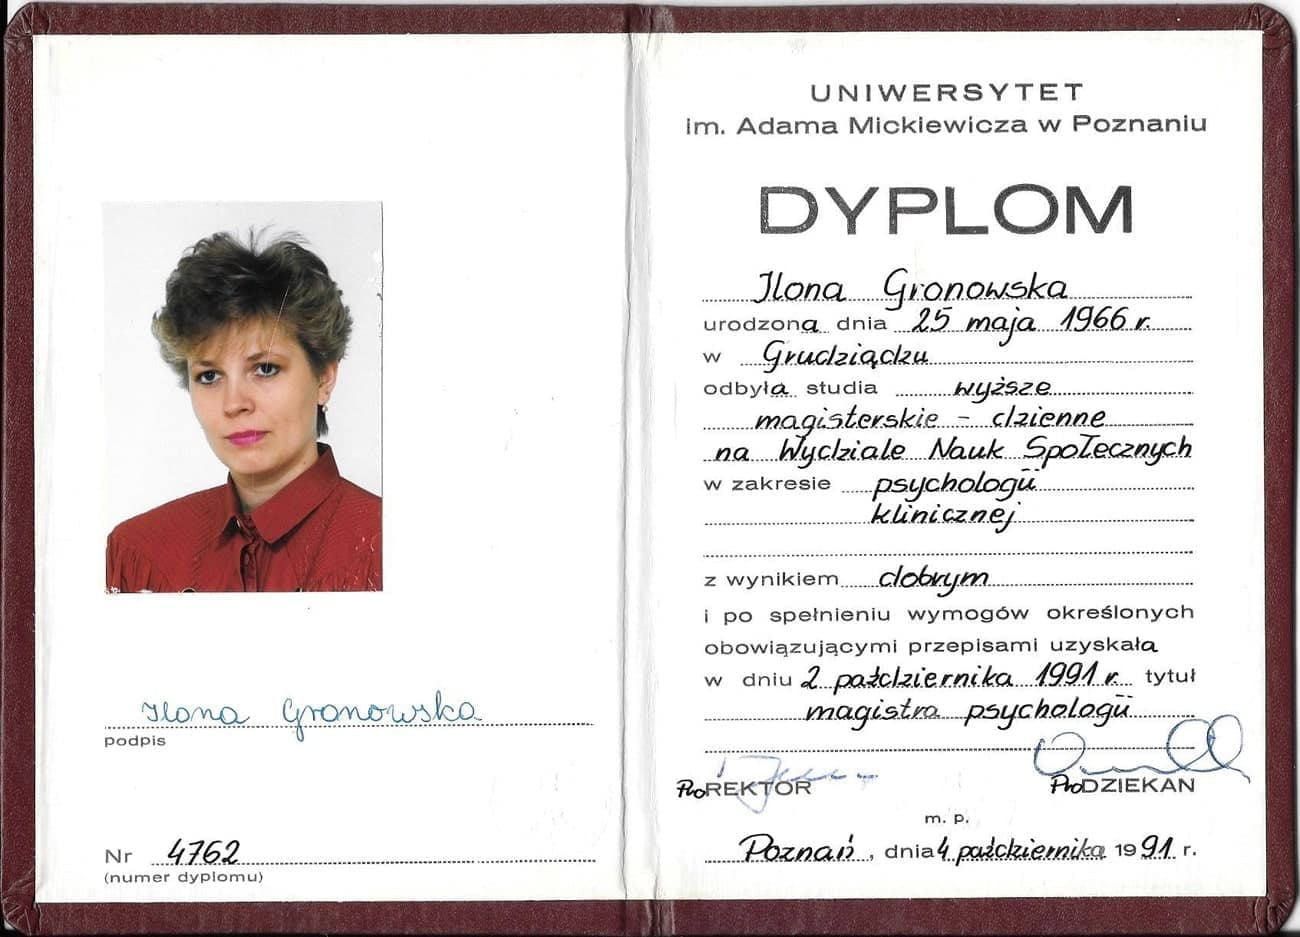 Ilona Gronowska
podpis
Nr 4762
(numer dyplomu)
UNIWERSYTET
im. Adama Mickiewicza w Poznaniu
DYPLOM
Ilona Gronowska
urodzona dnia 25 maja 1966 r.
w Grudziądzu
odbyła studia wyższe
magisterskie - dzienne
na Wydziale Nauk Społecznych
w zakresie psychologii
klinicznej
z wynikiem dobrym
i po spełnieniu wymogów określonych
obowiązującymi przepisami uzyskała
w dniu 2 października 1991 r. tytuł
magistra psychologii
ProREKTOR ProDZIEKAN
m. p.
Poznań, dnia 4 października 1991 r.